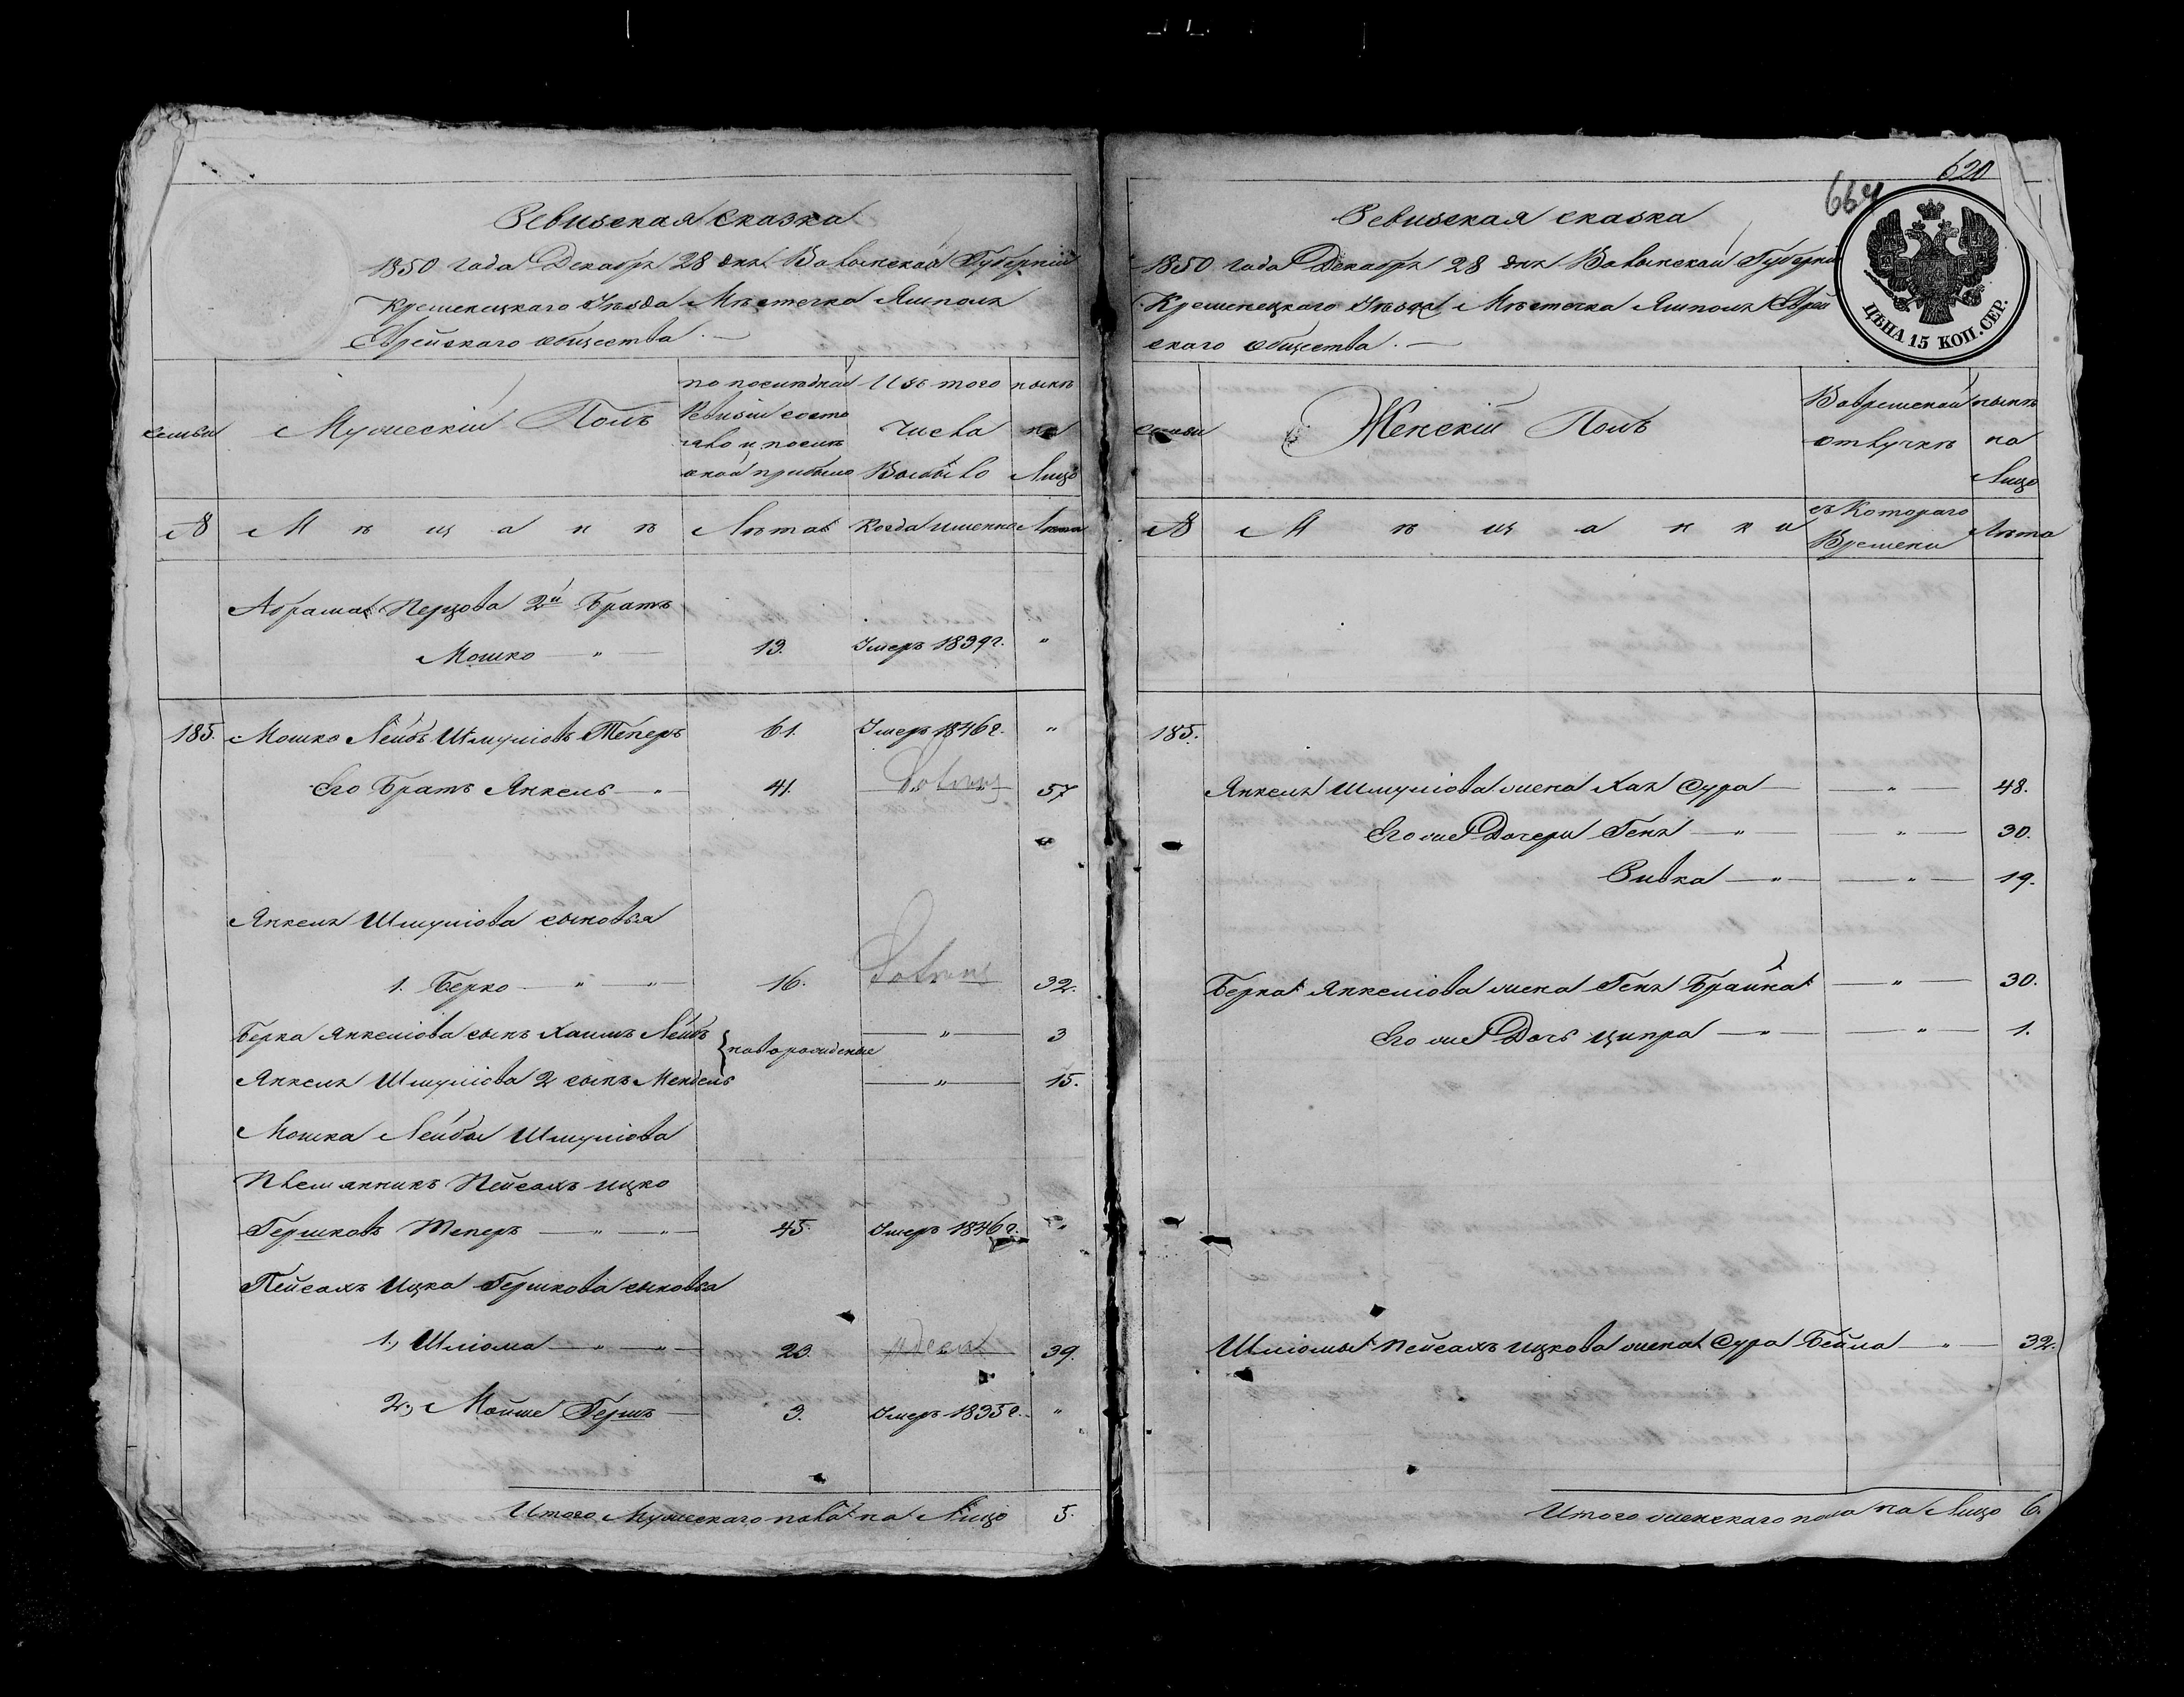 Ревизская сказка
1850 года Декабря 28 дня Волынской Губернии
Кременецкаго Уезда Местечка Ямполя
Еврейского общества
семьи
Мужеский Полъ
по последней
Ревизіи состо
яло и после
оной прибыло
Изъ того
числа
Выбыло
ныне
на
Лицо
№
М ѣ щ а н ѣ
Лѣта
Когда именно
Лѣта
Абрама Перцова 2й Братъ
Мошко — " — 13. Умеръ 1839г. "
185. Мошко Лейбъ Шмуліовъ Теперъ 61. Умеръ 1846г. "
Его Братъ Янкель — " 41. 57
Янкеля Шмуліова сыновья
1. Берко — " — " — 16. 32.
Берка Янкеліова сынъ Хаимъ Лейбъ — " — 3
новорожденые
Янкеля Шмуліова 2 сынъ Мендель — " — 15.
Мошка Лейбы Шмуліова
Племянникъ Пейсахъ Ицко
Гершковъ Теперъ — " — " — 45. Умеръ 1846г. "
Пейсахъ Ицка Гершкова сыновья
1., Шліома — " — " — 23. 39.
2., Мойше Гершъ — 3. Умеръ 1835г. "
Итого Мужескаго пола на Лицо 5.
620
664
ЦѢНА 15 КОП. СЕР.
Ревизская сказка
1850 года Декабря 28 дня Волынской Губерніи
Кременецкаго Уезда Местечка Ямполя Еврей
скаго общества
семьи
Женскій Полъ
Вовременой
отлучкѣ
ныне
на
Лицо
№
М ѣ щ а н к и
съ Котораго
Времени
Лѣта
185.
Янкеля Шмуліова жена Хая Сура — — " — 48.
Его же Дочери Геня — " — — " — 30.
Ривка — " — — " — 19.
Берка Янкеліова жена Геня Брайна — " — 30.
Его же Дочь Ципра — " — — " — 1.
Шліомы Пейсахъ Ицкова жена Сура Бейла — " — 32.
Итого женскаго пола на Лицо 6.